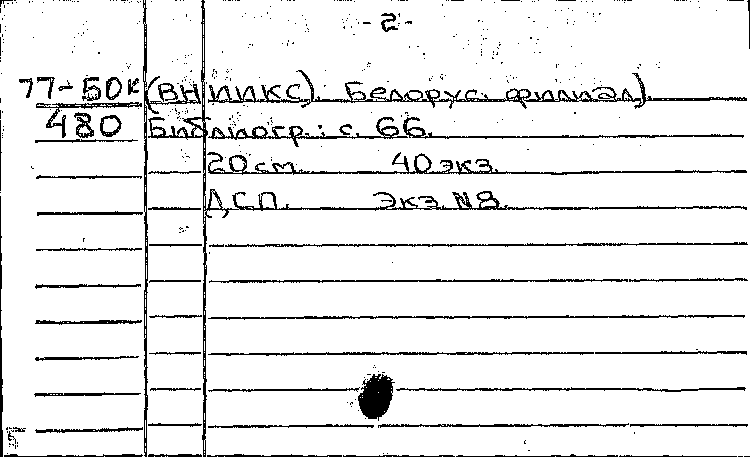 - 2 -
77-50к (ВНИИКС). Белорус. филиал).
480 Библиогр.: с. 66.
20 см. 40 экз.
Д.С.П. Экз. N8.